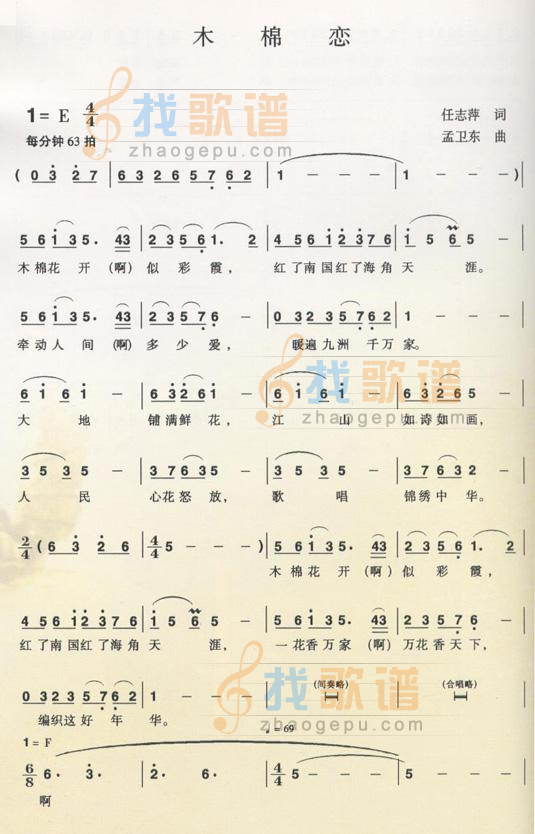 木棉恋
1= E 4/4
任志萍 词
每分钟 63 拍
孟卫东 曲
找歌谱
zhaogepu.com
( 0 3 2 7 | 6 3 2 6 5 7 6 2 | 1 - - - | 1 - - - ) |
5 6 1 3 5. 43 | 2 3 5 6 1. 2 | 4 5 6 1 2 3 7 6 | 1 5 6 5 - |
木棉花 开 (啊) 似 彩霞, 红了南国红了海角 天 涯。
5 6 1 3 5. 43 | 2 3 5 7 6 - | 0 3 2 2 3 5 7 6 2 | 1 - - - |
牵动人 间 (啊) 多 少 爱, 暖遍九洲 千万 家。
6 1 6 1 - | 6 3 2 6 1 - | 6 1 6 1 - | 6 3 2 6 5 - |
大 地 铺满鲜 花, 江 山 如诗如 画,
找歌谱
zhaogepu.com
3 5 3 5 - | 3 7 6 5 - | 3 5 3 5 - | 3 7 6 3 2 - |
人 民 心花怒 放, 歌 唱 锦绣中 华。
2/4 ( 6 3 2 6 | 4/4 5 - - - ) | 5 6 1 3 5. 43 | 2 3 5 6 1. 2 |
木棉花 开 (啊) 似 彩 霞,
4 5 6 1 2 3 7 6 | 1 5 6 5 - | 5 6 1 3 5. 43 | 2 3 5 7 6 - |
红了南国红了海角 天 涯, 一花香万家 (啊) 万花香天下,
0 3 2 3 5 7 6 2 | 1 - - - | (间奏略) | (合唱略) |
编织这好 年 华。
找歌谱
zhaogepu.com
♩=69
1= F
6/8 6. 3. | 2. 6. | 4/4 5 - - - | 5 - - - |
啊